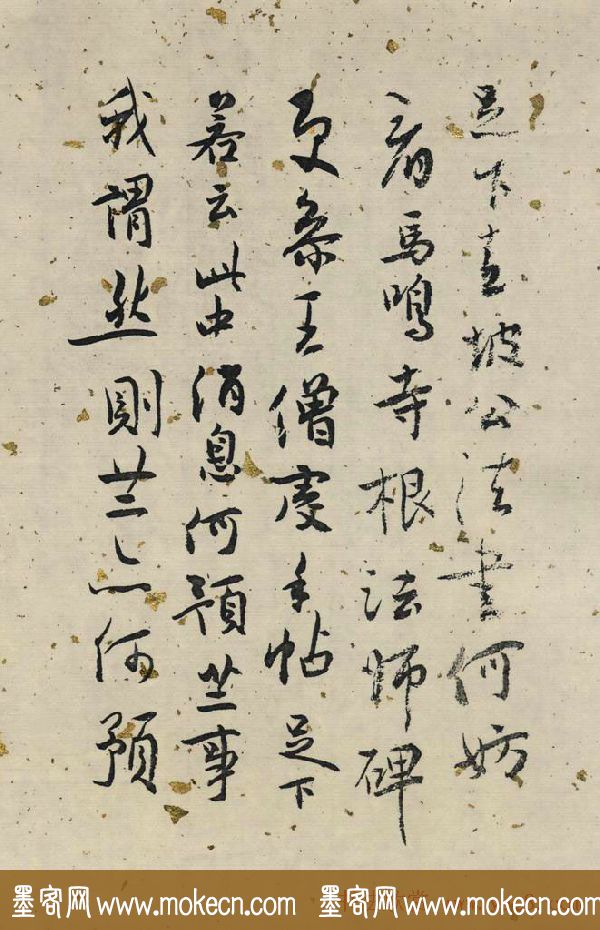 足下坡公法書何妨
看馬鳴寺根法師碑
更參王僧虔手帖足下
若云此中消息何預事
我謂然則何預
墨客网www.mokecn.com 墨客网www.mokecn.com